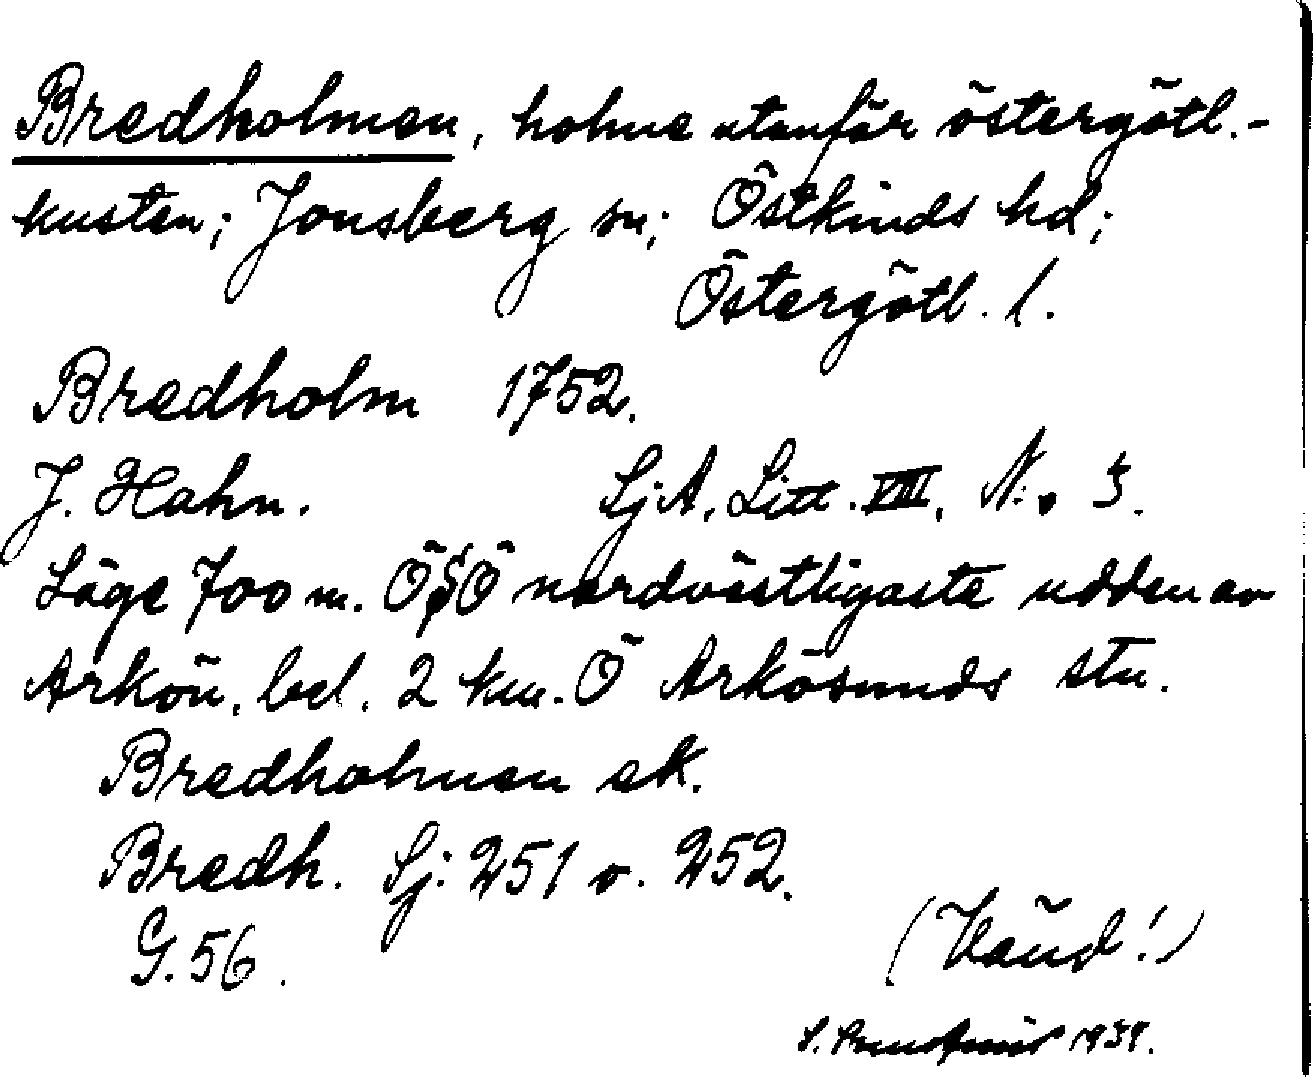 Bredholmen, holme utanför östergötl.-
kusten; Jonsberg sn; Östkinds hd;
Östergötl. l.
Bredholm 1752.
J. Hahn. SjA, Litt. VIII, N:o 3.
Läge 700 m. ÖSÖ nordvästligaste udden av
Arkön, bel. 2 km. Ö Arkösunds stn.
Bredholmen ek.
Bredh. Sj: 251 o. 252.
G. 56.
(Vänd!)
S. 1939.